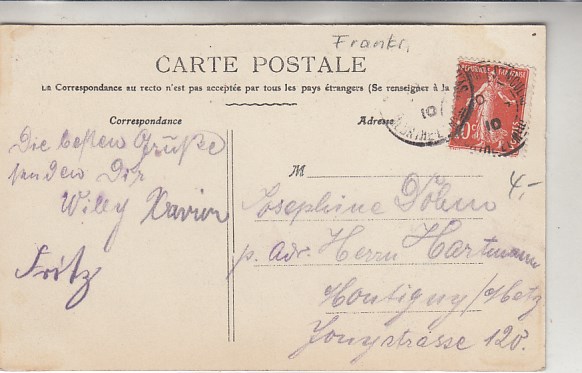 Frankr.
CARTE POSTALE
La Correspondance au recto n'est pas acceptée par tous les pays étrangers (Se renseigner à la
Correspondance
Adresse
Die besten Grüße
senden Dir
Willy Xavier
Fritz
M
Josephine
p. Adr. Herrn Hartmann
Montigny/Metz
strasse 120.
4.-
10
10
10c